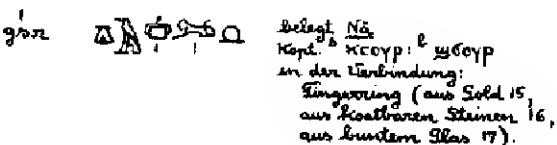 gśr belegt Nä.
Kopt. ᵇ ⲕⲥⲟⲩⲣ: ˡ ϣϭⲟⲩⲣ
in der Verbindung:
Fingerring (aus Gold 15,
aus kostbaren Steinen 16,
aus buntem Glas 17).